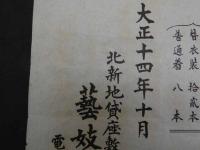 替衣裝 拾貳本
普通着 八本
大正十四年十月
北新地貸座敷
藝妓
電